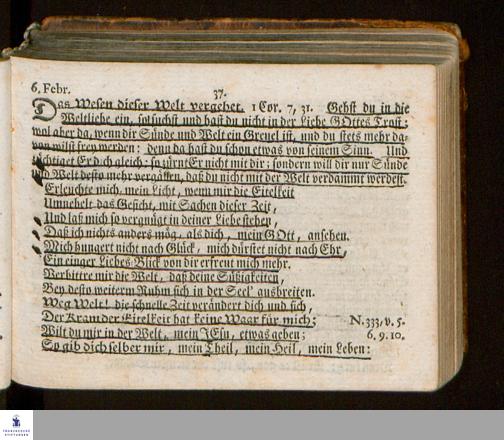 6. Febr.
37.
Das Wesen dieser Welt vergehet. 1 Cor. 7, 31. Gehst du in die
Weltliebe ein, so suchst und hast du nicht in der Liebe GOttes Trost:
wol aber da, wenn dir Sünde und Welt ein Greuel ist, und du stets mehr da-
von wilst frey werden: denn da hast du schon etwas von seinem Sinn. Und
züchtiget Er dich gleich: so zürnt Er nicht mit dir; sondern will dir nur Sünde
und Welt desto mehr vergällen, daß du nicht mit der Welt verdammt werdest.
Erleuchte mich, mein Licht, wenn mir die Eitelkeit
Umnebelt das Gesicht, mit Sachen dieser Zeit,
Und laß mich so vergnügt in deiner Liebe stehen,
Daß ich nichts anders mög, als dich, mein GOtt, ansehen.
Mich hungert nicht nach Glück, mich dürstet nicht nach Ehr,
Ein einger Liebes-Blick von dir erfreut mich mehr.
Verbittre mir die Welt, daß deine Süßigkeiten,
Bey desto weiterm Ruhm sich in der Seel' ausbreiten.
Weg Welt! die schnelle Zeit verändert dich und sich,
Der Kram der Eitelkeit hat keine Waar für mich;
N. 333, v. 5.
Wilt du mir in der Welt, mein JEsu, etwas geben;
6. 9. 10.
So gib dich selber mir, mein Theil, mein Heil, mein Leben:
FRANCKESCHE
STIFTUNGEN